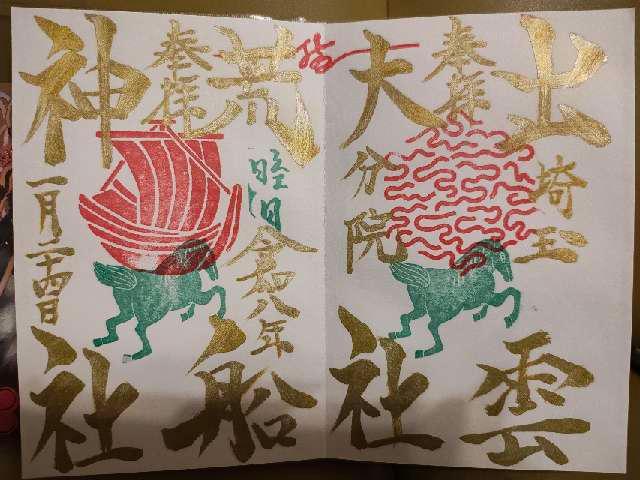 出雲
埼玉
奉拝
大社
分院
荒船
睦月
令和八年
奉拝
神社
一月二十四日